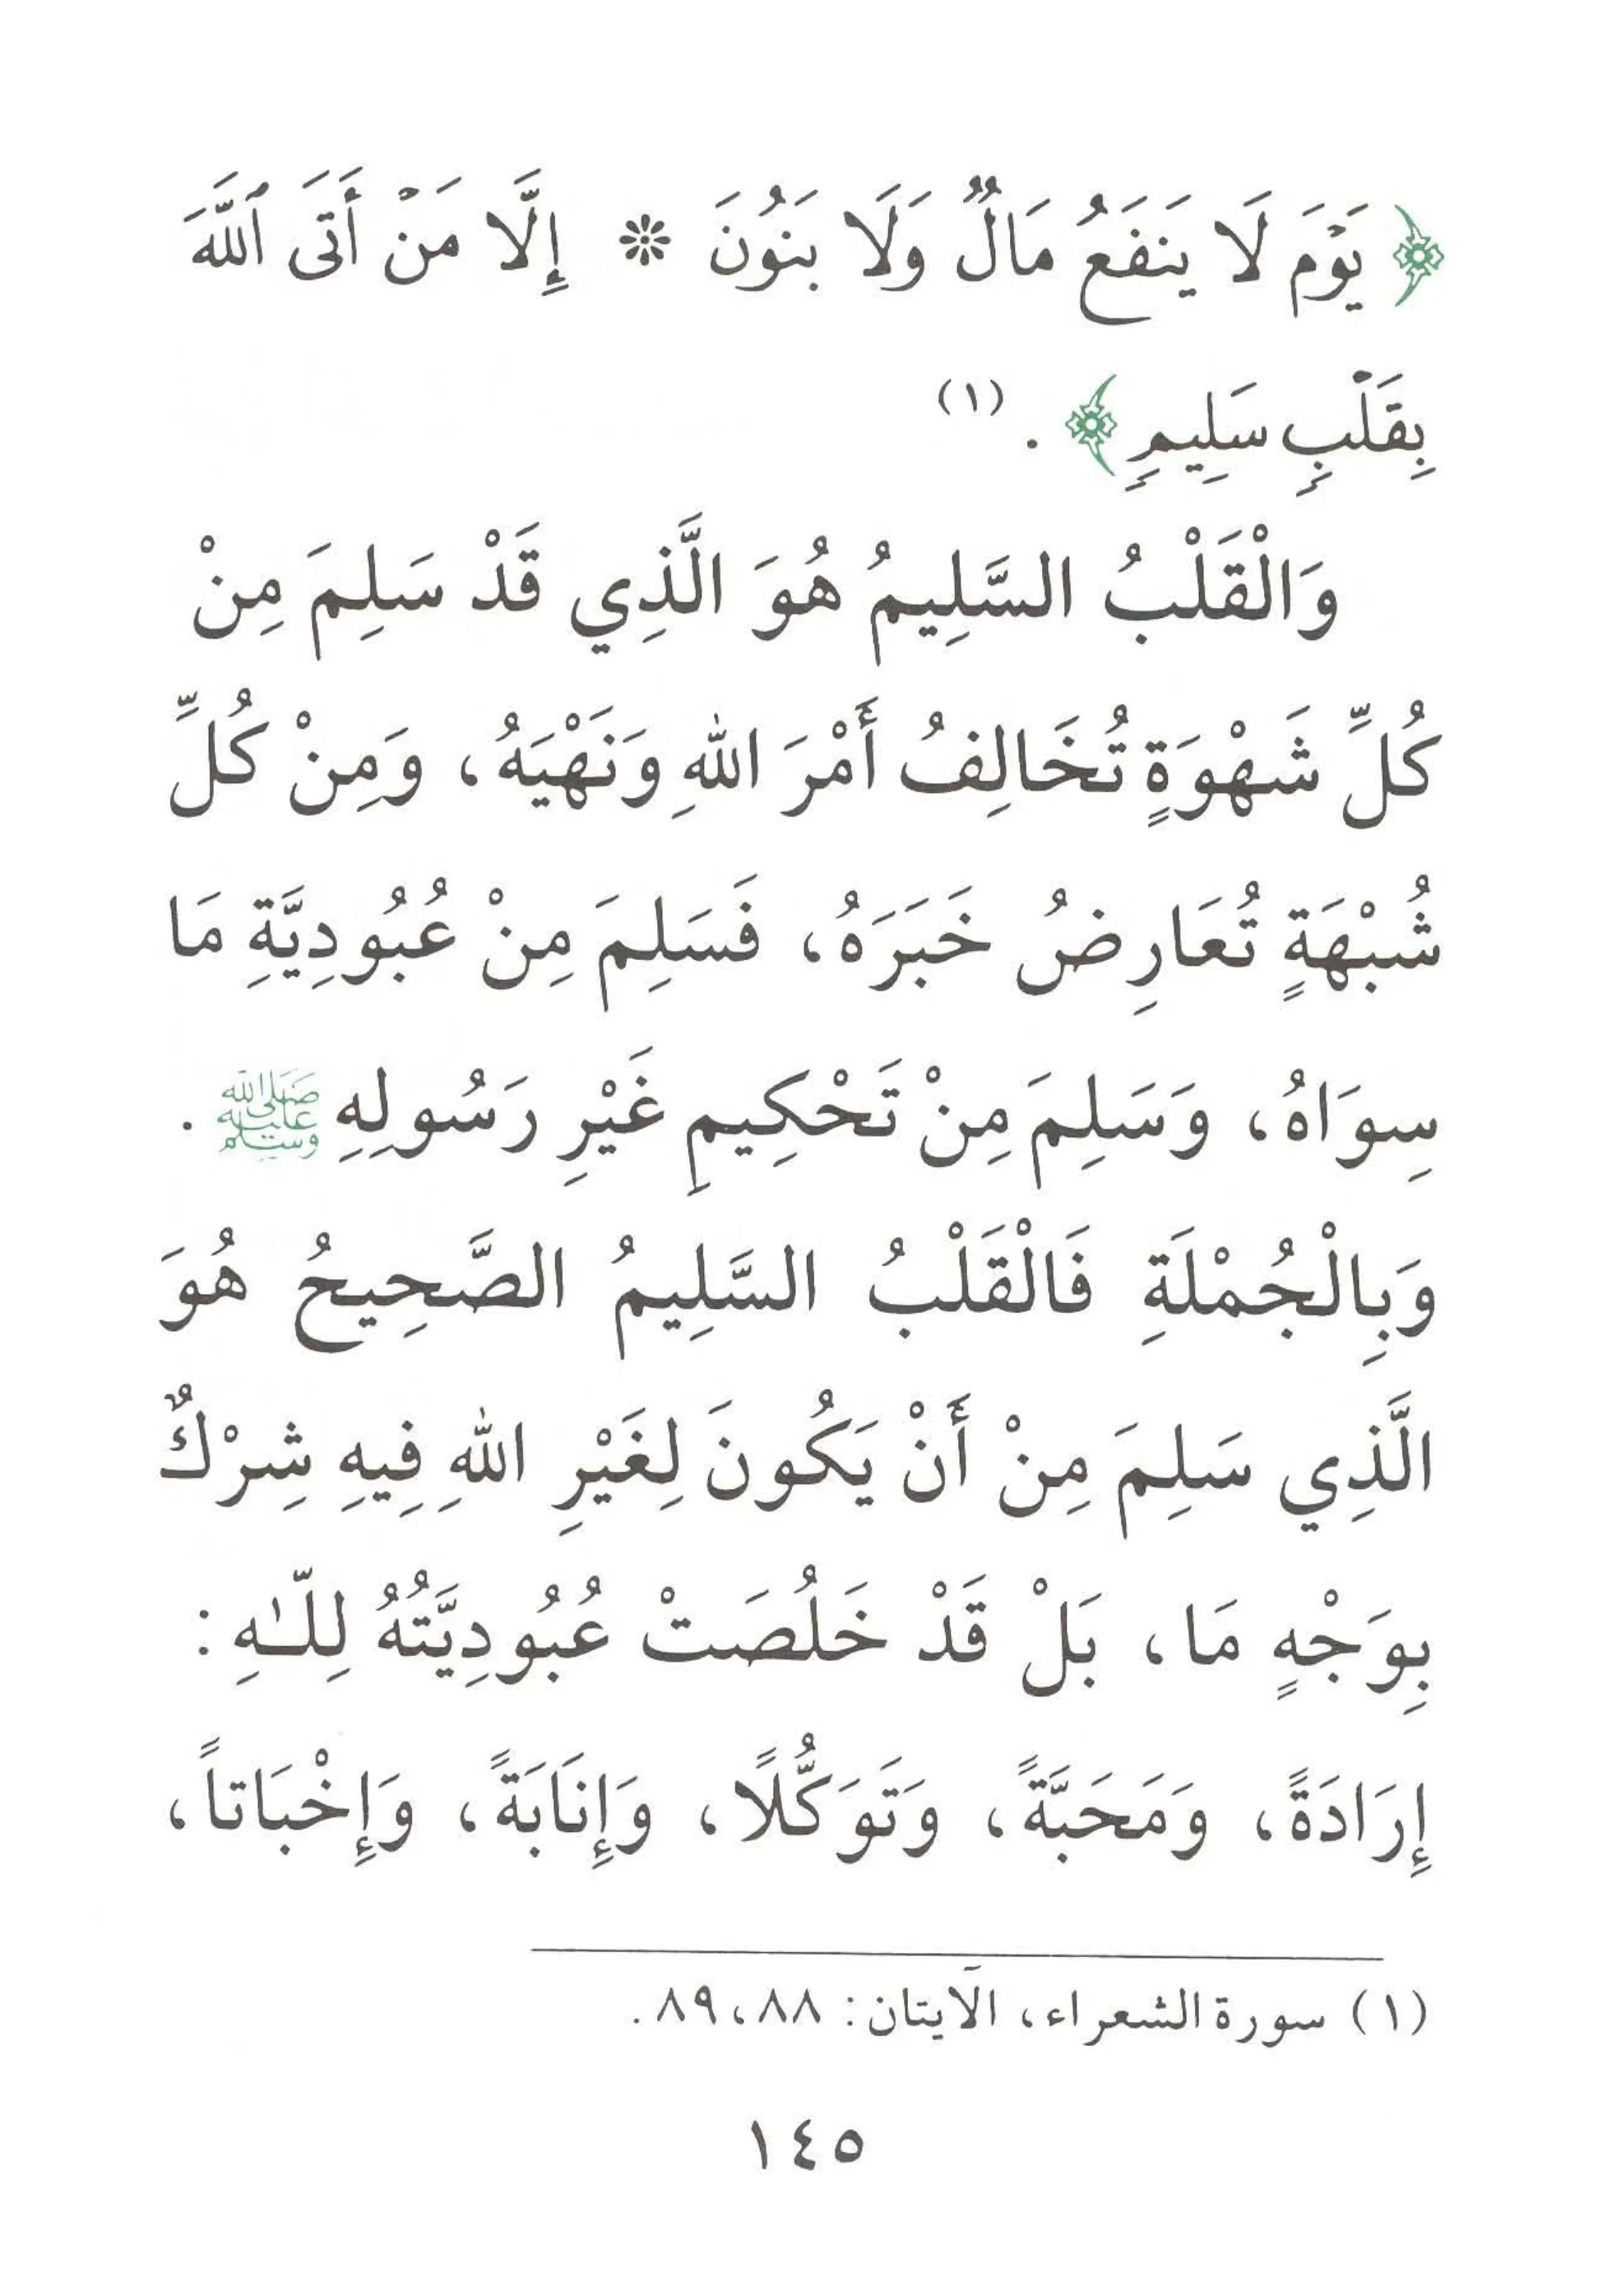 ﴿ يَوْمَ لَا يَنفَعُ مَالٌ وَلَا بَنُونَ * إِلَّا مَنْ أَتَى ٱللَّهَ
بِقَلْبٍ سَلِيمٍ ﴾ . (١)
وَالْقَلْبُ السَّلِيمُ هُوَ الَّذِي قَدْ سَلِمَ مِنْ
كُلِّ شَهْوَةٍ تُخَالِفُ أَمْرَ اللهِ وَنَهْيَهُ، وَمِنْ كُلِّ
شُبْهَةٍ تُعَارِضُ خَبَرَهُ، فَسَلِمَ مِنْ عُبُودِيَّةِ مَا
سِوَاهُ، وَسَلِمَ مِنْ تَحْكِيمِ غَيْرِ رَسُولِهِ ﷺ .
وَبِالْجُمْلَةِ فَالْقَلْبُ السَّلِيمُ الصَّحِيحُ هُوَ
الَّذِي سَلِمَ مِنْ أَنْ يَكُونَ لِغَيْرِ اللهِ فِيهِ شِرْكٌ
بِوَجْهٍ مَا، بَلْ قَدْ خَلُصَتْ عُبُودِيَّتُهُ لِلّٰهِ :
إِرَادَةً، وَمَحَبَّةً، وَتَوَكُّلًا، وَإِنَابَةً، وَإِخْبَاتاً،
(١) سورة الشعراء، الآيتان: ٨٨، ٨٩.
١٤٥